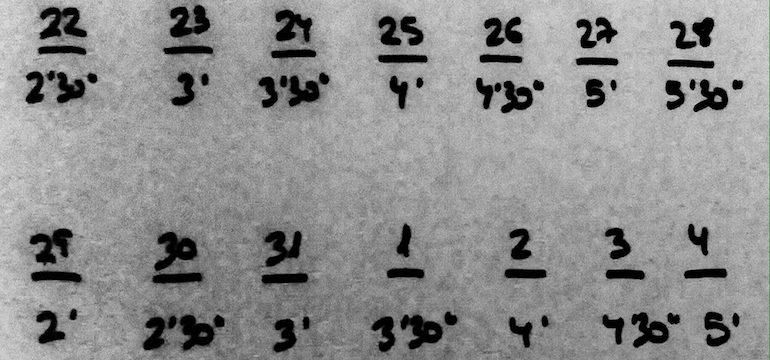 22 23 24 25 26 27 28
2'30" 3' 3'30" 4' 4'30" 5' 5'30"
29 30 31 1 2 3 4
2' 2'30" 3' 3'30" 4' 4'30" 5'